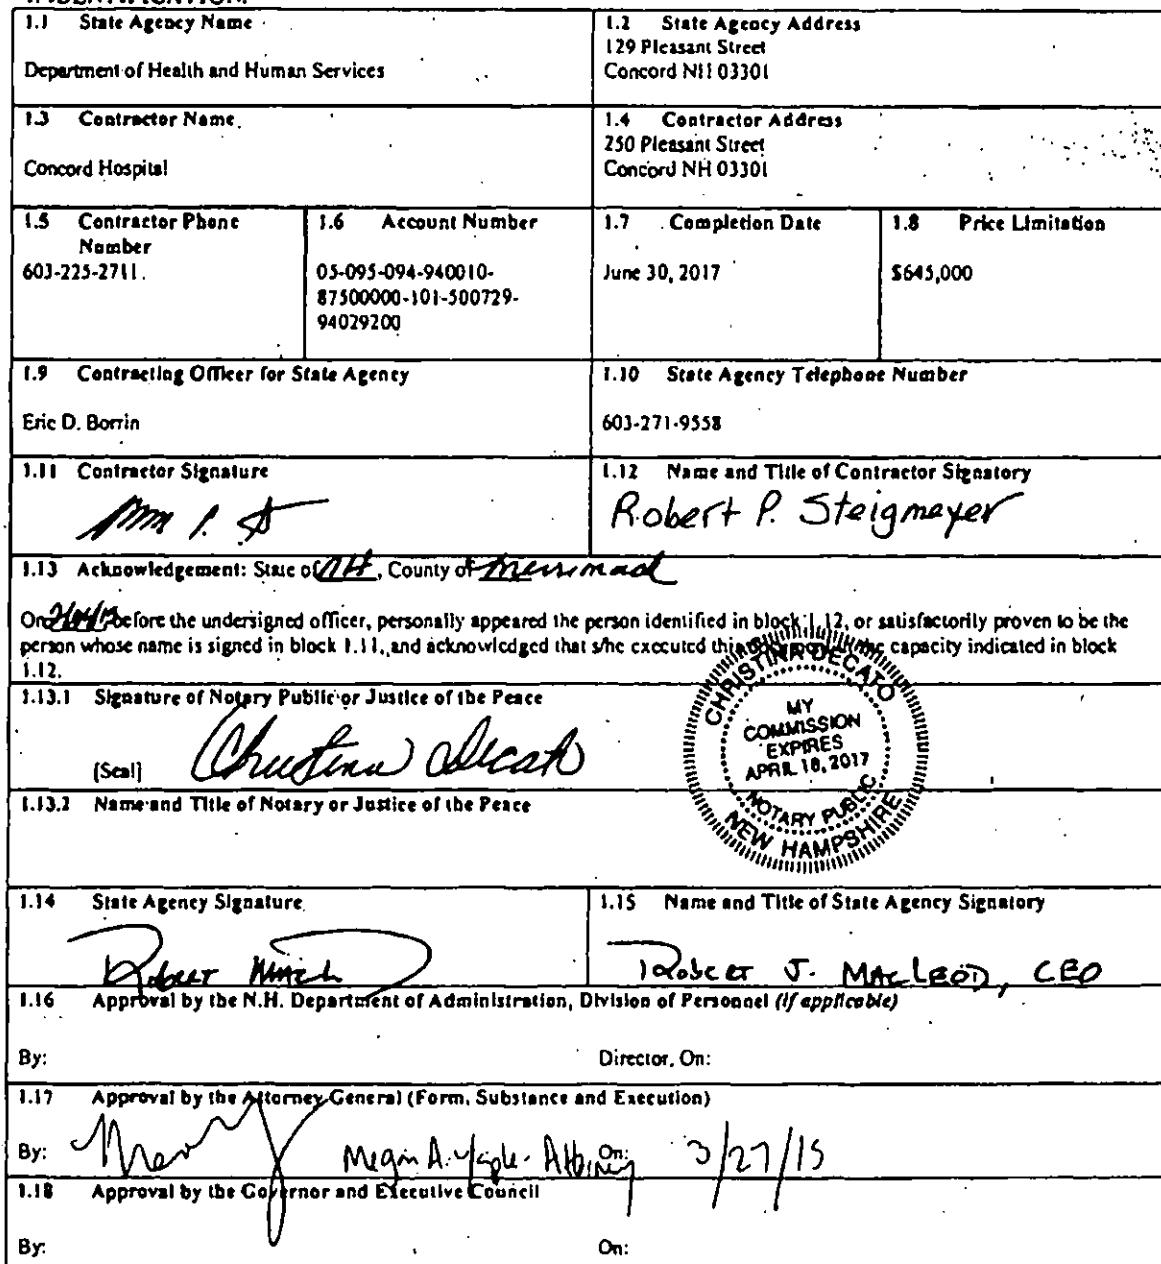 1.1 State Agency Name
Department of Health and Human Services
1.2 State Agency Address
129 Pleasant Street
Concord NH 03301
1.3 Contractor Name
Concord Hospital
1.4 Contractor Address
250 Pleasant Street
Concord NH 03301
1.5 Contractor Phone
Number
603-225-2711
1.6 Account Number
05-095-094-940010-
87500000-101-500729-
94029200
1.7 Completion Date
June 30, 2017
1.8 Price Limitation
$645,000
1.9 Contracting Officer for State Agency
Eric D. Borrin
1.10 State Agency Telephone Number
603-271-9558
1.11 Contractor Signature
1.12 Name and Title of Contractor Signatory
Robert P. Steigmeyer
1.13 Acknowledgement: State of NH, County of Merrimack
On before the undersigned officer, personally appeared the person identified in block 1.12, or satisfactorily proven to be the
person whose name is signed in block 1.11, and acknowledged that s/he executed this capacity indicated in block
1.12.
1.13.1 Signature of Notary Public or Justice of the Peace
[Seal] Christina Decato
CHRISTINA DECATO
MY
COMMISSION
EXPIRES
APRIL 18, 2017
NOTARY PUBLIC
NEW HAMPSHIRE
1.13.2 Name and Title of Notary or Justice of the Peace
1.14 State Agency Signature
Robert
1.15 Name and Title of State Agency Signatory
Robert J. MacLeod, CEO
1.16 Approval by the N.H. Department of Administration, Division of Personnel (if applicable)
By: Director, On:
1.17 Approval by the Attorney General (Form, Substance and Execution)
By: Megan A. Attorney On: 3/27/15
1.18 Approval by the Governor and Executive Council
By: On: